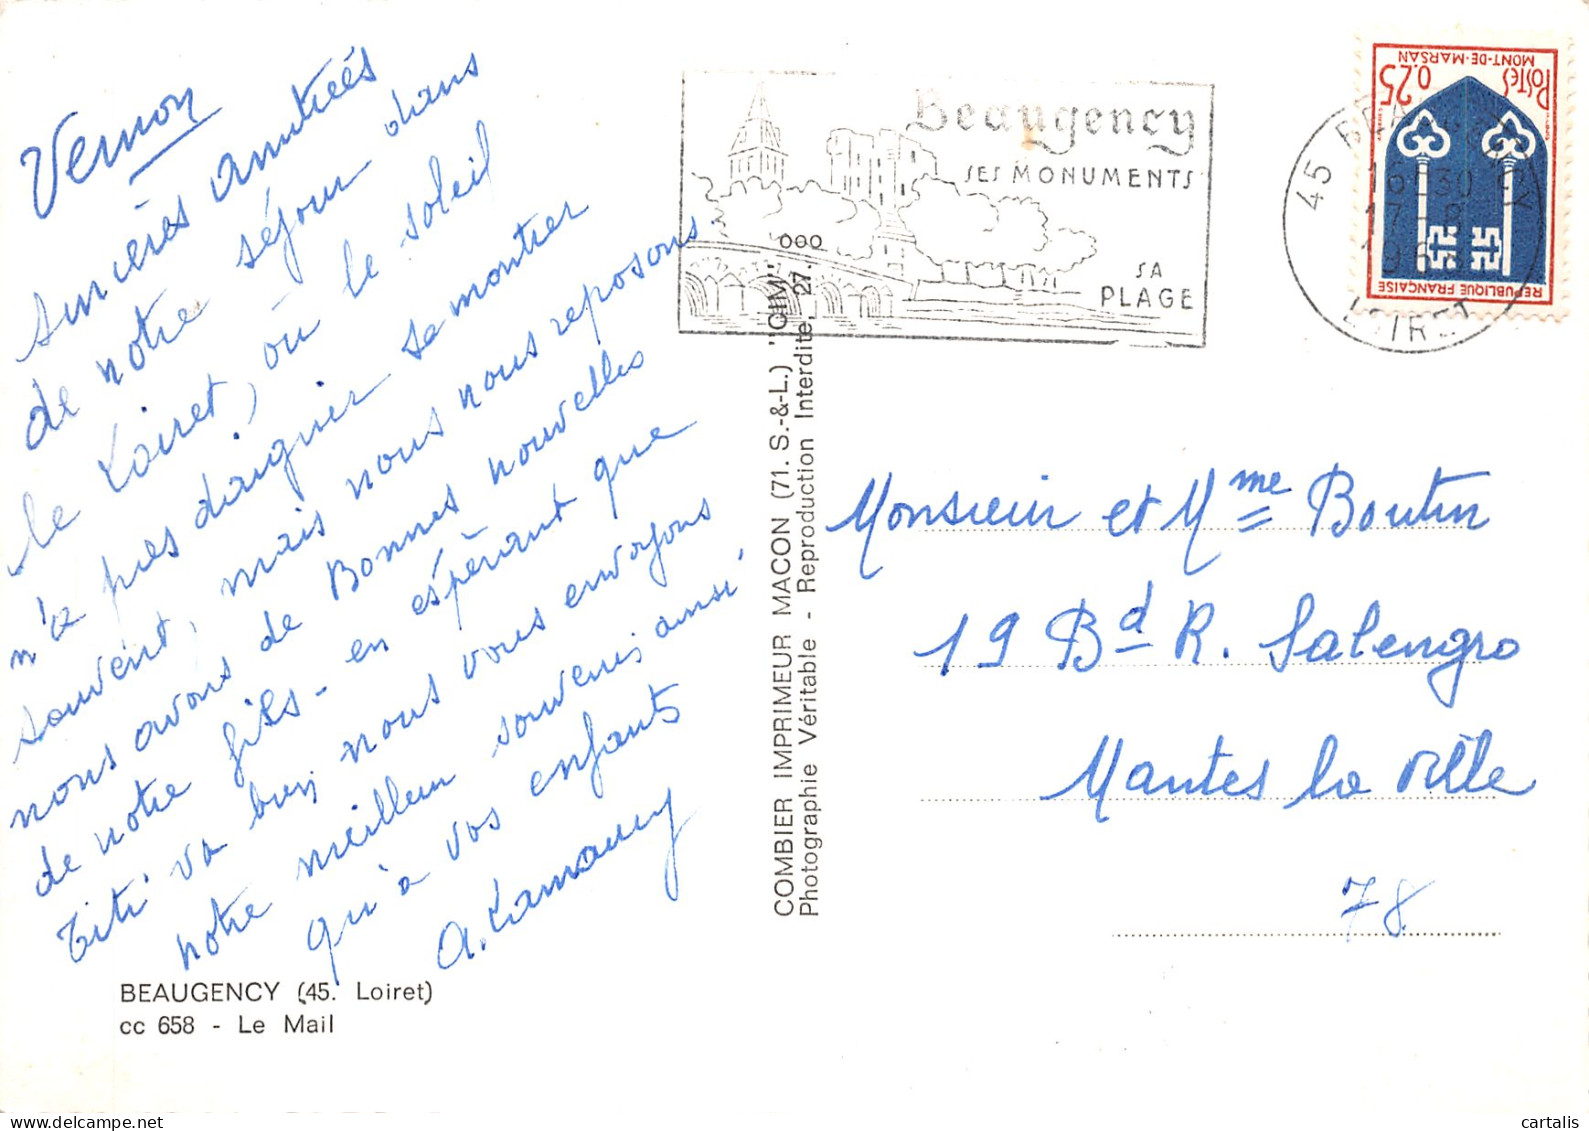 Vernon
sincères amitiés
de notre séjour dans
le Loiret, où le soleil
n'a pas daigner se montrer
souvent, mais nous nous reposons.
nous avons de Bonnes nouvelles
de notre fils - en espérant que
Titi va bien nous vous envoyons
notre meilleur souvenir ainsi
qu'à vos enfants
BEAUGENCY (45. Loiret)
cc 658 - Le Mail
COMBIER IMPRIMEUR MACON (71. S.-&-L.) "CIM"
Photographie Véritable - Reproduction Interdite. 27.
000
Beaugency
SES MONUMENTS
SA
PLAGE
45 BEAUGENCY
16-30
17-9
LOIRET
POSTES
0.25
MONT-DE-MARSAN
REPUBLIQUE FRANÇAISE
Monsieur et Mme Boutin
19 Bd R. Salengro
Mantes la Ville
78